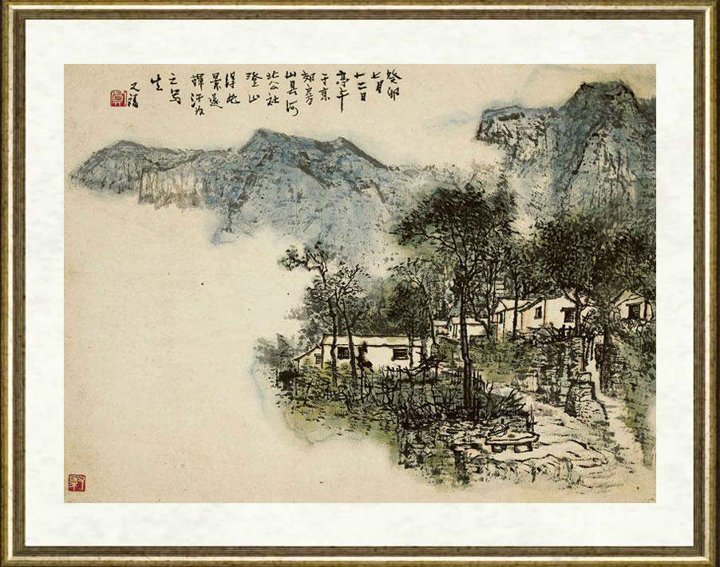 癸卯
七月
十二日
亭午
于京
郊房
山县河
北公社
登山
得此
景遂
揮汗为
之写
生